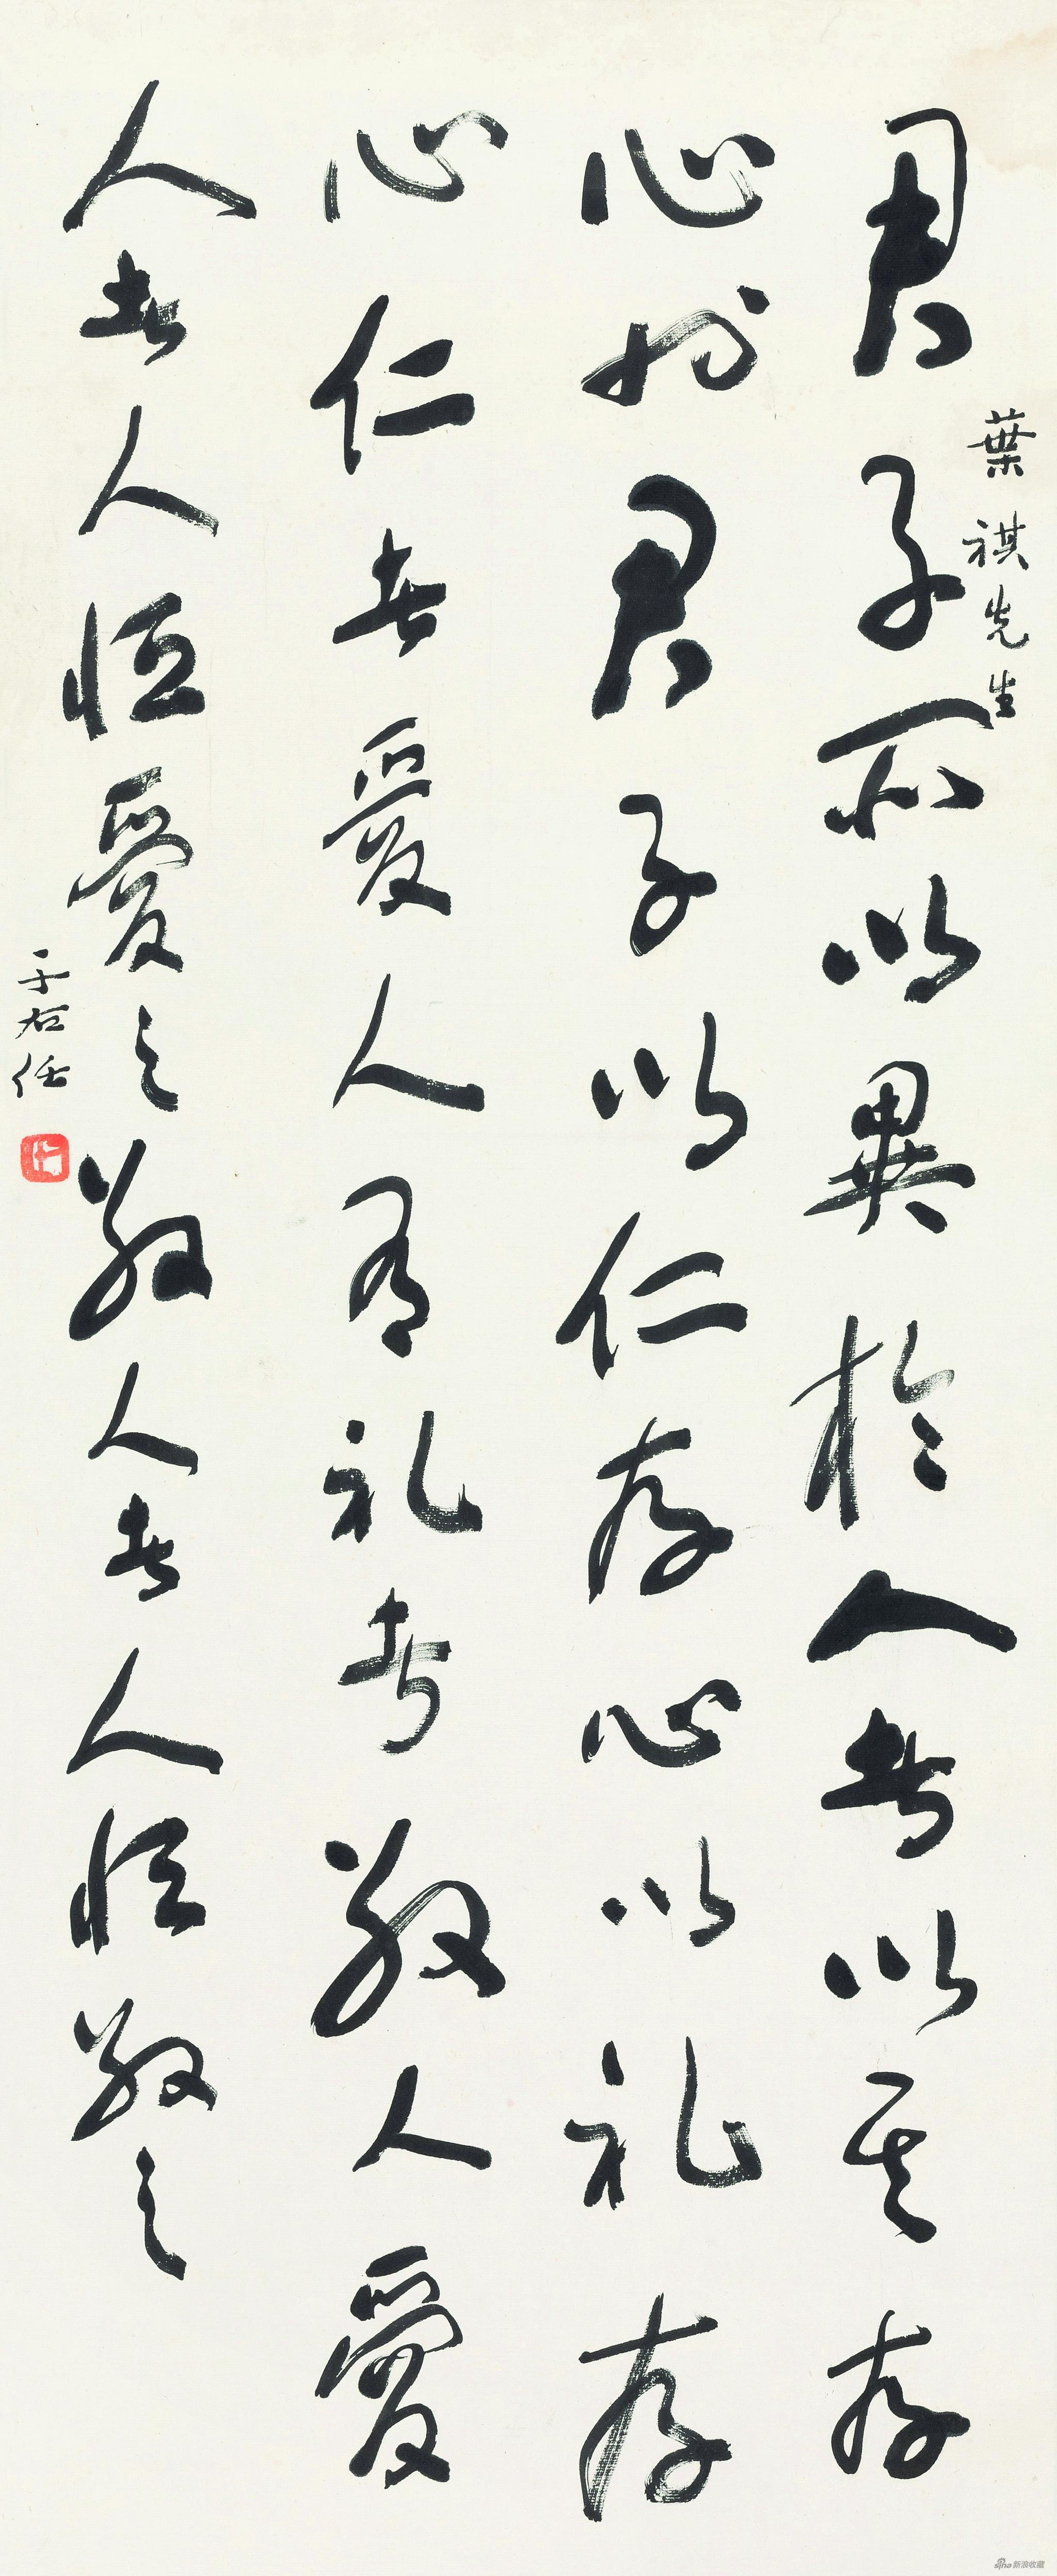 葉祺先生
君子所以異於人者以其存
心也君子以仁存心以礼存
心仁者愛人有礼者敬人愛
人者人恒愛之敬人者人恒敬之
于右任
sina 新浪收藏